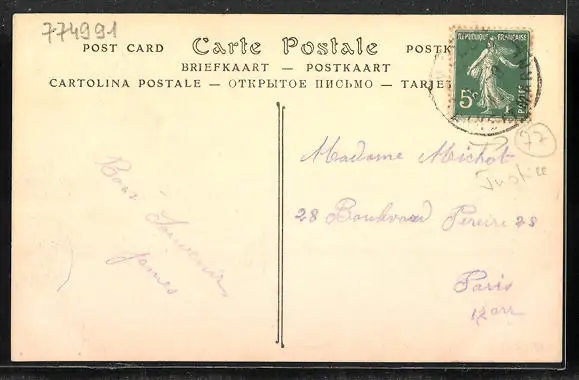 774991
POST CARD Carte Postale POSTK
BRIEFKAART — POSTKAART
CARTOLINA POSTALE — ОТКРЫТОЕ ПИСЬМО — TARJE
RÉPUBLIQUE FRANÇAISE
5c
POSTE
77
Justice
Bons Souvenirs
James
Madame Michot
28 Boulevard Pereire 28
Paris